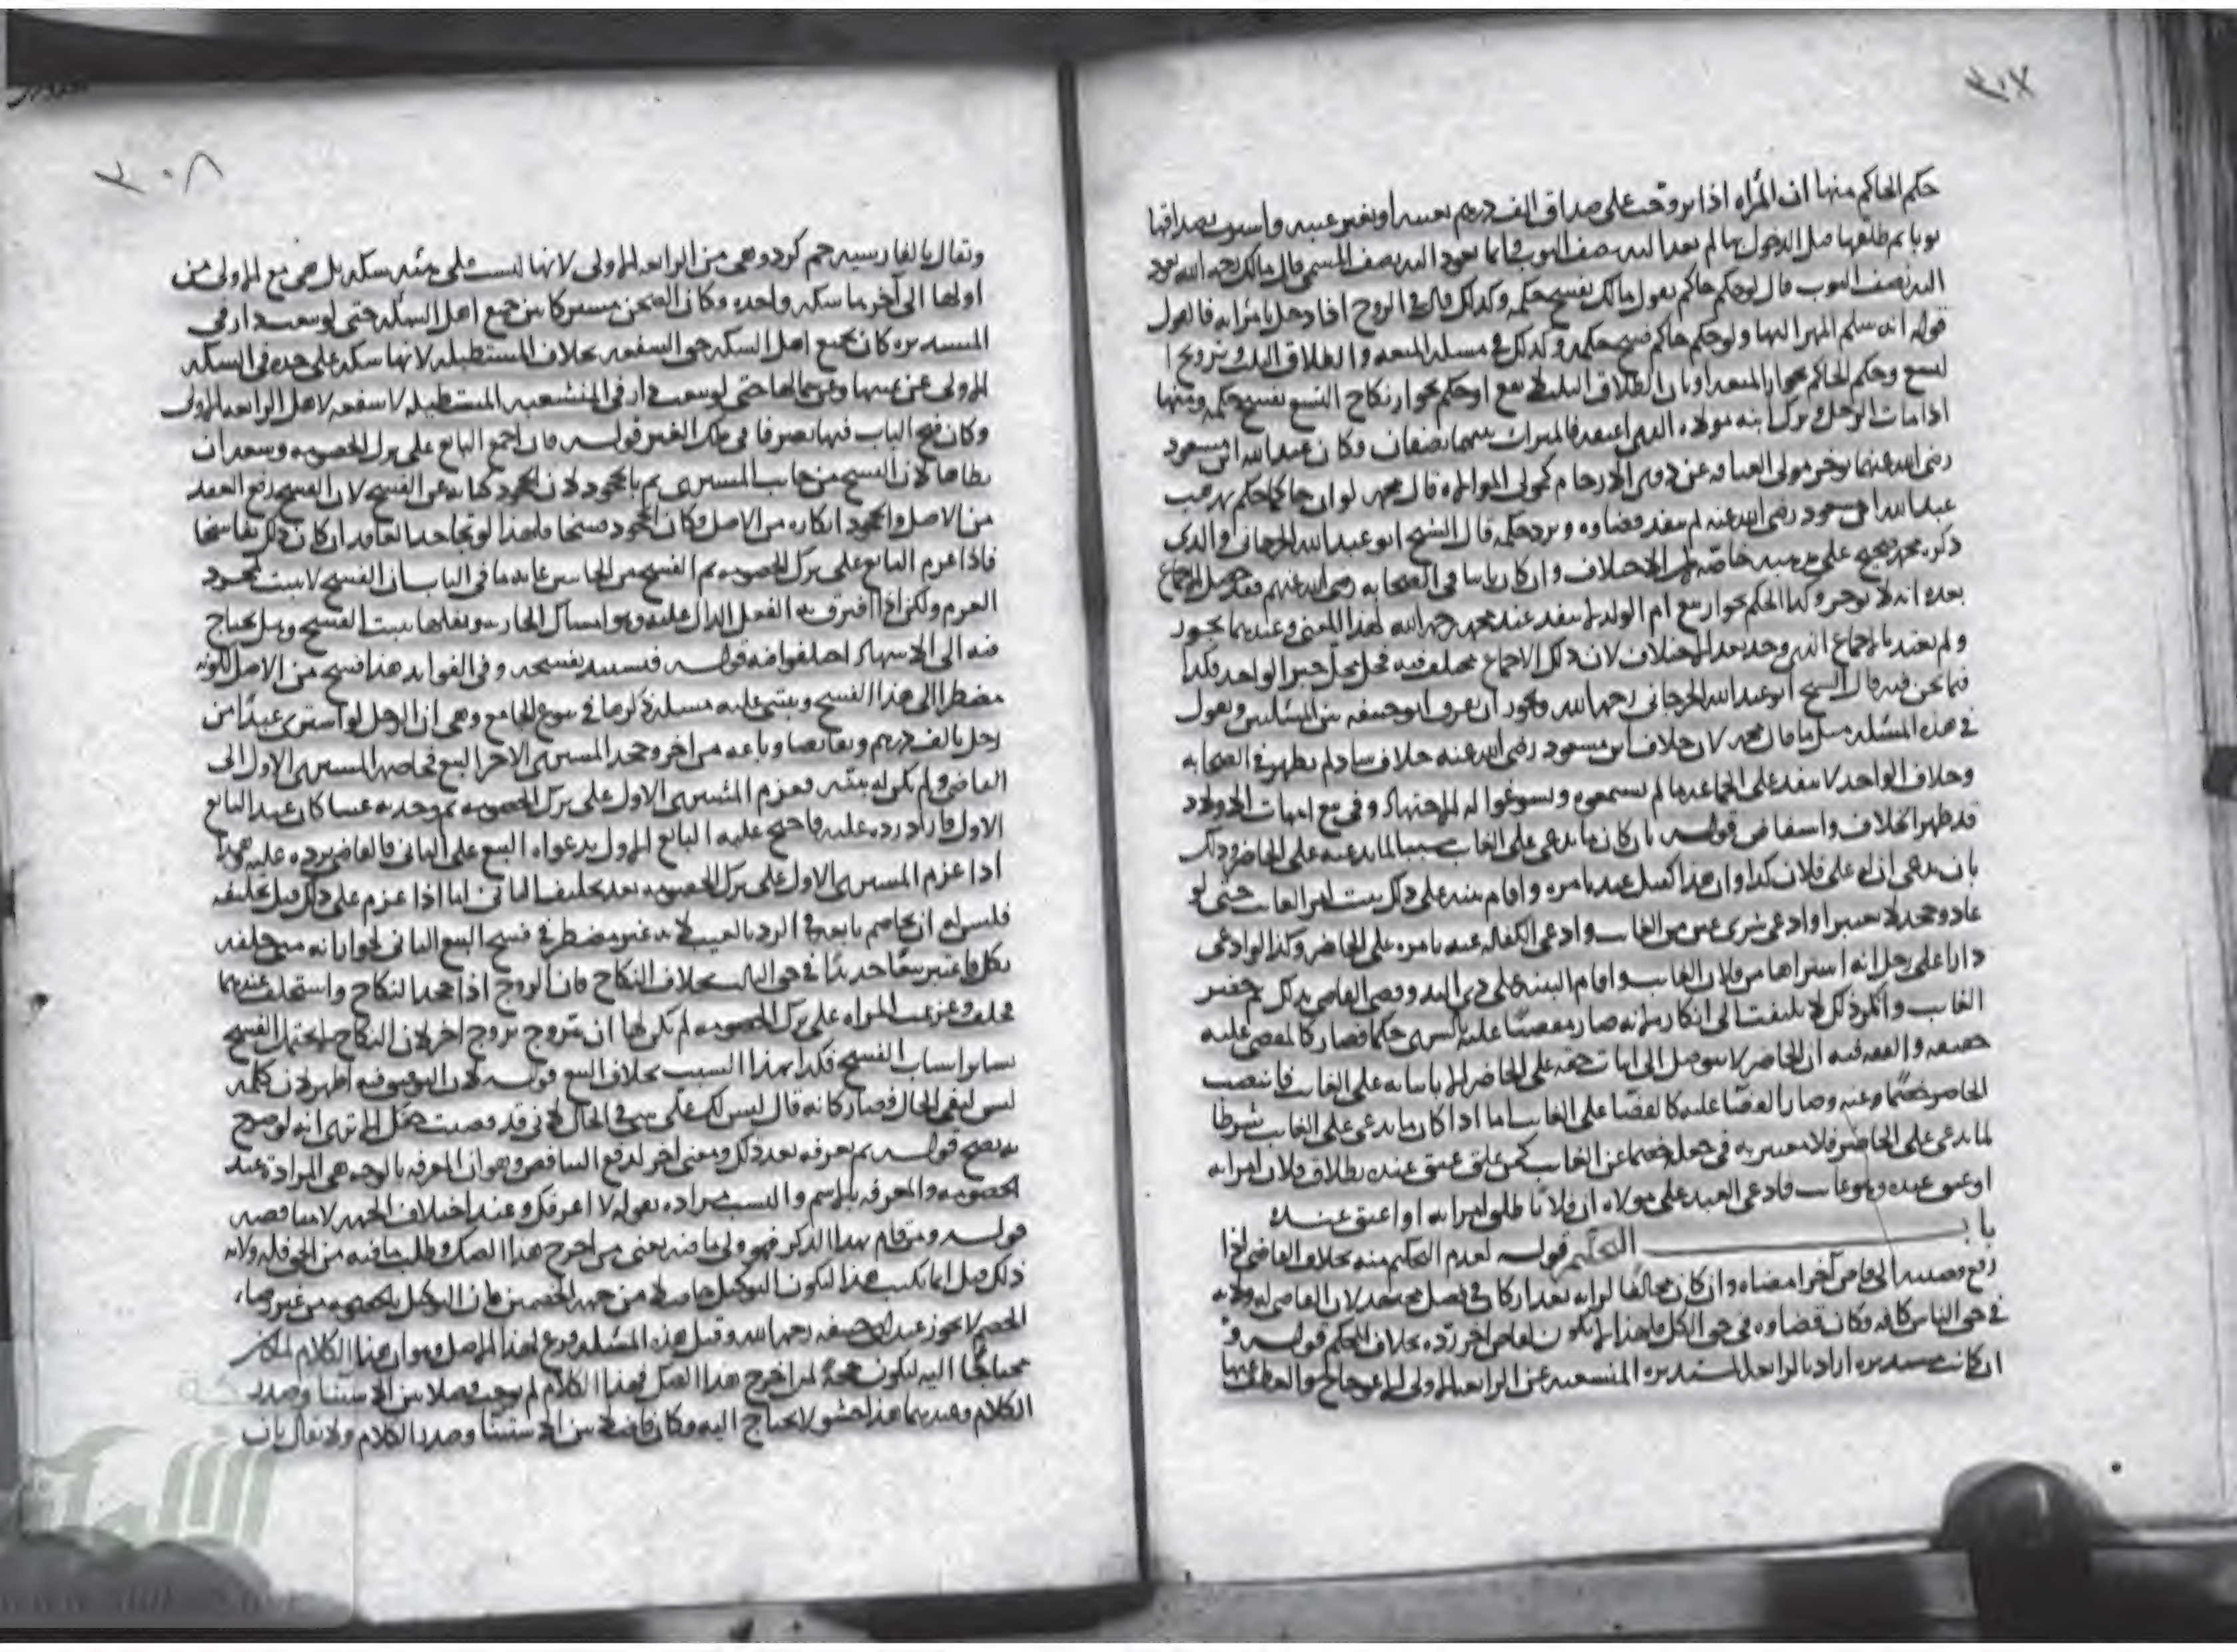 ٣٠٧
حكم الحاكم منها ان المراه اذا تزوجت على صداق الف درهم بعينه او بغير عينه واشترت بصداقها
ثوبا ثم طلقها قبل الدخول بها لم يعد اليه نصف الثوب فانما يعود اليه نصف المسمى قال مالك رحمه الله يعود
اليه نصف الثوب قال لو حكم حاكم بقول مالك يفسخ حكمه وكذلك قال في الزوج اذا دخل بامراته فالقول
قوله انه سلم المهر اليها ولو حكم حاكم فسخ حكمه وكذلك في مسئله المتعه والطلاق الثلث وتزوج
لتسع وحكم الحاكم بجواز المتعه او بان الطلاق الثلث لا يقع او حكم بجواز نكاح التسع نفسخ حكمه ومنها
اذا مات الرجل وترك ابنه مولاه الذي اعتقه فالميراث بينهما نصفان وكان عبد الله ابن مسعود
رضى الله عنهما يوخر مولى العتاقه عن ذوى الارحام كمولى الموالاه قال محمد لو ان حاكما حكم بمذهب
عبد الله بن مسعود رضى الله عنه لم ينفذ قضاوه ويرد حكمه قال الشيخ ابو عبد الله الجرجانى والذى
ذكره محمد صحيح على مذهبه خاصه ظهر الاختلاف وان كان ثابتا في الصحابه رضى الله عنهم فقد حصل الاجماع
بعده انه لا يوخر وكذا الحكم بجواز بيع ام الولد لا ينفذ عند محمد رحمه الله لهذا المعنى وعندهما يجوز
ولم يعتد بالاجماع الذى وجد بعد الاختلاف لان ذلك الاجماع مختلف فيه فحل محل خبر الواحد فكذا
فيما نحن فيه قال الشيخ ابو عبد الله الجرجانى رحمه الله ويجوز ان يفرق ابو حنيفه بين المسئلتين ويقول
في هذه المسئله مثل ما قال محمد لان خلاف ابن مسعود رضى الله عنه خلاف شاذ لم يظهر في الصحابه
وخلاف الواحد لا ينفذ على الجماعه ما لم يسمعوه ويسوغوا له الاجتهاد وفي بيع امهات الاولاد
قد ظهر الخلاف واستفاض قوله بان كان ما يدعى على الغائب سببا لما يدعيه على الحاضر وذلك
بان يدعى ان له على فلان كذا وان هذا كفيل عنه بامره واقام بينه على ذلك يثبت امر الغائب حتى لو
عاد وجحد لا يعتبر او ادعى شرى عين من الغائب وادعى الكفاله عنه بامره على الحاضر وكذا لو ادعى
دارا على رجل انه اشتراها من فلان الغائب واقام البينه على ذى اليد وقضى القاضى بذلك ثم حضر
الغائب وانكر ذلك لا يلتفت الى انكاره لانه صار مقضيا عليه بالشرى حكما فصار كالمقضى عليه
حقيقه والفقه فيه ان الحاضر لا يتوصل الى اثبات حقه على الحاضر الا باثباته على الغائب فانتصب
الحاضر خصما عنه وصار القضا عليه كالقضا على الغائب اما اذا كان ما يدعى على الغائب شرطا
لما يدعى على الحاضر فلا معتبر به في جعله خصما عن الغائب كمن علق عتق عبده بطلاق فلان امراته
او عتق عبده وهو غائب فادعى العبد على مولاه ان فلانا طلق امراته او اعتق عبده
باب التحكيم قوله لعدم التحكيم منه بخلاف القاضى اذا
رفع قضيته الى قاض آخر امضاه وان كان مخالفا لرايه بعد ان كان في فصل مجتهد لان القاضى له ولايه
في حق الناس كافه فكان قضاوه في حق الكل فلهذا لا يكون لقاض اخر رده بخلاف المحكم قوله و
ان كانت مستديره اراد بالزائغه المستديره المنشعبه عن الزائغه الاولى الاعوجاج هو العطف منها
٣٠٨
ويقال بالفارسيه خم كرد وهى من الزائغه الاولى لانها ليست على هيئه سكه بل هى مع الاولى من
اولها الى آخرها سكه واحده وكان الصحن مشتركا بين جميع اهل السكه حتى لو بيعت دار في
المستديره كان لجميع اهل السكه حق الشفعه بخلاف المستطيله لانها سكه على حده في السكه
الاولى عن يمينها وعن شمالها حتى لو بيعت دار في المنشعبه المستطيله لا شفعه لاهل الزائغه الاولى
وكان فتح الباب فيها تصرفا في ملك الغير قوله فان اجمع البائع على ترك الخصومه وسعه ان
يطاها لان الفسخ من جانب المشترى تم بالجحود لان الجحود كنايه عن الفسخ لان الفسخ رفع العقد
من الاصل والجحود انكاره من الاصل فكان الجحود فسخا فلهذا لو تجاحدا العاقدان كان ذلك تفاسخا
فاذا عزم البائع على ترك الخصومه تم الفسخ من الجانبين غايه ما في الباب ان الفسخ لا يثبت بمجرد
العزم ولكن اذا اقترن به الفعل الدال عليه وهو امساك الجاريه ونقلها يثبت الفسخ وهل يحتاج
فيه الى الاشهاد اختلفوا فيه قوله فيستبد بفسخه وفي الفوايد هذا فسخ من الاصل لكونه
مضطرا الى هذا الفسخ ويبتنى عليه مسئله ذكرها في بيوع الجامع وهى ان الرجل لو اشترى عبدا من
رجل بالف درهم وتقابضا وباعه من اخر وجحد المشترى الاخر البيع فخاصم المشترى الاول الى
القاضى ولم يكن له بينه فعزم المشترى الاول على ترك الخصومه ثم وجد به عيبا كان عند البائع
الاول فاراد رده عليه فاحتج عليه البائع الاول بدعواه البيع على الثانى فالقاضى يرده عليه
اذا عزم المشترى الاول على ترك الخصومه بعد تحليف الثانى اما اذا عزم على ذلك قبل تحليفه
فليس له ان يخاصم بايعه في الرد بالعيب لانه غير مضطر في فسخ البيع الثانى لجواز انه متى حلفه
نكل فاعتبر بيعا جديدا في حق الثالث بخلاف النكاح فان الزوج اذا جحد النكاح واستحلف عندهما
فحلف وعزمت المراه على ترك الخصومه لم تكن لها ان تتزوج بزوج اخر لان النكاح لا يحتمل الفسخ
بسائر اسباب الفسخ فكذا بهذا السبب بخلاف البيع قوله لان التوفيق فيه اظهر لان كلمه
ليس لنفى الحال فصار كانه قال ليس لك على شى في الحال لانى قد قضيت حقك الا ترى انه لو صرح
به يصح قوله ثم يعرفه بعد ذلك ومعنى اخر لدفع التناقض وهو ان المعرفه بالوجه هى المراده عند
الخصومه والمعرفه بالاسم والنسب مراده بقوله لا اعرفك وعند اختلاف الجهه لا مناقضه
قوله ومن قام بهذا الذكر فهو ولى ما فيه يعنى من اخرج هذا الصك وطلب ما فيه من الحق فله ولايه
ذلك قيل انما يكتب هذا ليكون التوكيل حاصلا من جهه الخصمين فان التوكيل بالخصومه من غير رضاء
الخصم لا يجوز عند ابى حنيفه رحمه الله وقيل هذه المسئله فرع لهذا الاصل وهو ان هذا الكلام لما كان
محتاجا اليه ليكون حجه لمن اخرج هذا الصك فهذا الكلام لم يوجب فصلا بين الاستثنا وصدر
الكلام وعندهما هذا حشو لا يحتاج اليه وكان فاصلا بين الاستثنا وصدر الكلام ولا يقال بان